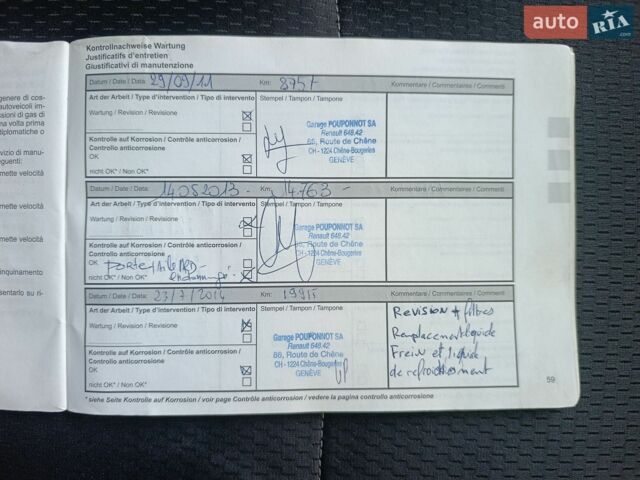 auto RIA.com
Kontrollnachweise Wartung
Justificatifs d'entretien
Giustificativi di manutenzione
genere di cos-
autoveicoli im-
ssioni di gas di
na volta prima
tiplomatiche o
vizio di manu-
eguenti:
mette velocità
mette velocità
mette velocità
inquinamento
sentarlo su ri-
Datum / Date / Data: 29/09/11 Km: Kommentare / Commentaires / Commenti
Art der Arbeit / Type d'intervention / Tipo di intervento Stempel / Tampon / Tampone
Wartung / Revision / Revisione
Kontrolle auf Korrosion / Contrôle anticorrosion /
Controllo anticorrosione
OK
nicht OK* / Non OK*
Garage POUPONNOT SA
Renault 648.42
66, Route de Chêne
CH - 1224 Chêne-Bougeries
GENÈVE
Datum / Date / Data: 14.05.2013 - Km: 14.763 - Kommentare / Commentaires / Commenti
Art der Arbeit / Type d'intervention / Tipo di intervento Stempel / Tampon / Tampone
Wartung / Revision / Revisione
Kontrolle auf Korrosion / Contrôle anticorrosion /
Controllo anticorrosione
OK Porte/Aile ARD-
nicht OK* / Non OK* endommagé
Garage POUPONNOT SA
Renault 648.42
66, Route de Chêne
CH - 1224 Chêne-Bougeries
GENÈVE
Datum / Date / Data: 23/7/2014 Km: Kommentare / Commentaires / Commenti
Art der Arbeit / Type d'intervention / Tipo di intervento Stempel / Tampon / Tampone
Wartung / Revision / Revisione
Kontrolle auf Korrosion / Contrôle anticorrosion /
Controllo anticorrosione
OK
nicht OK* / Non OK*
Garage POUPONNOT SA
Renault 648.42
66, Route de Chêne
CH - 1224 Chêne-Bougeries
GENÈVE
Revision + filtres
Remplacement liquide
Frein et liquide
de refroidissement
59
* siehe Seite Kontrolle auf Korrosion / voir page Contrôle anticorrosion / vedere la pagina controllo anticorrosione